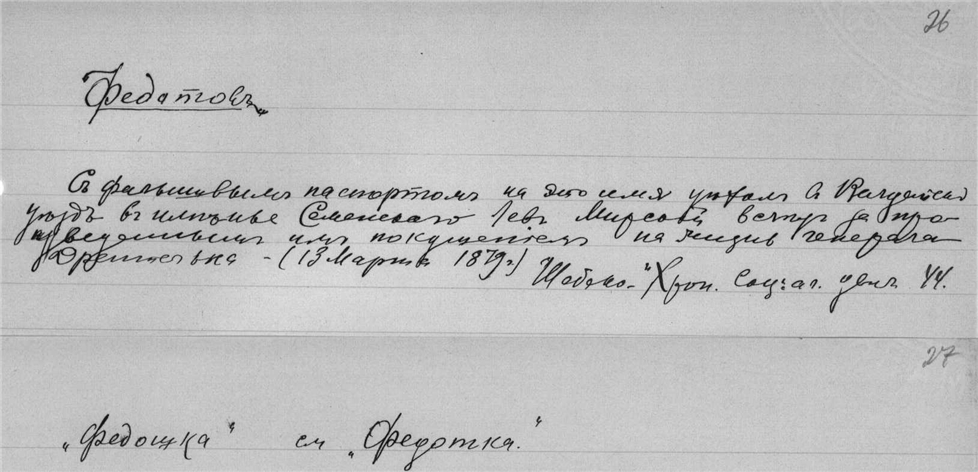 26
„Федотовъ“
Съ фальшивымъ паспортомъ на это имя уѣхалъ въ
уѣздъ въ имѣнье Семенскаго Левъ Мирскій вслѣдъ за про-
изведеннымъ имъ покушеніемъ на жизнь генерала
Дрентельна - (13 Марта 1879 г.)
Шебеко - "Хрон. Соціал. движ. 44.
27
„Федощка“ см „Федотка.“